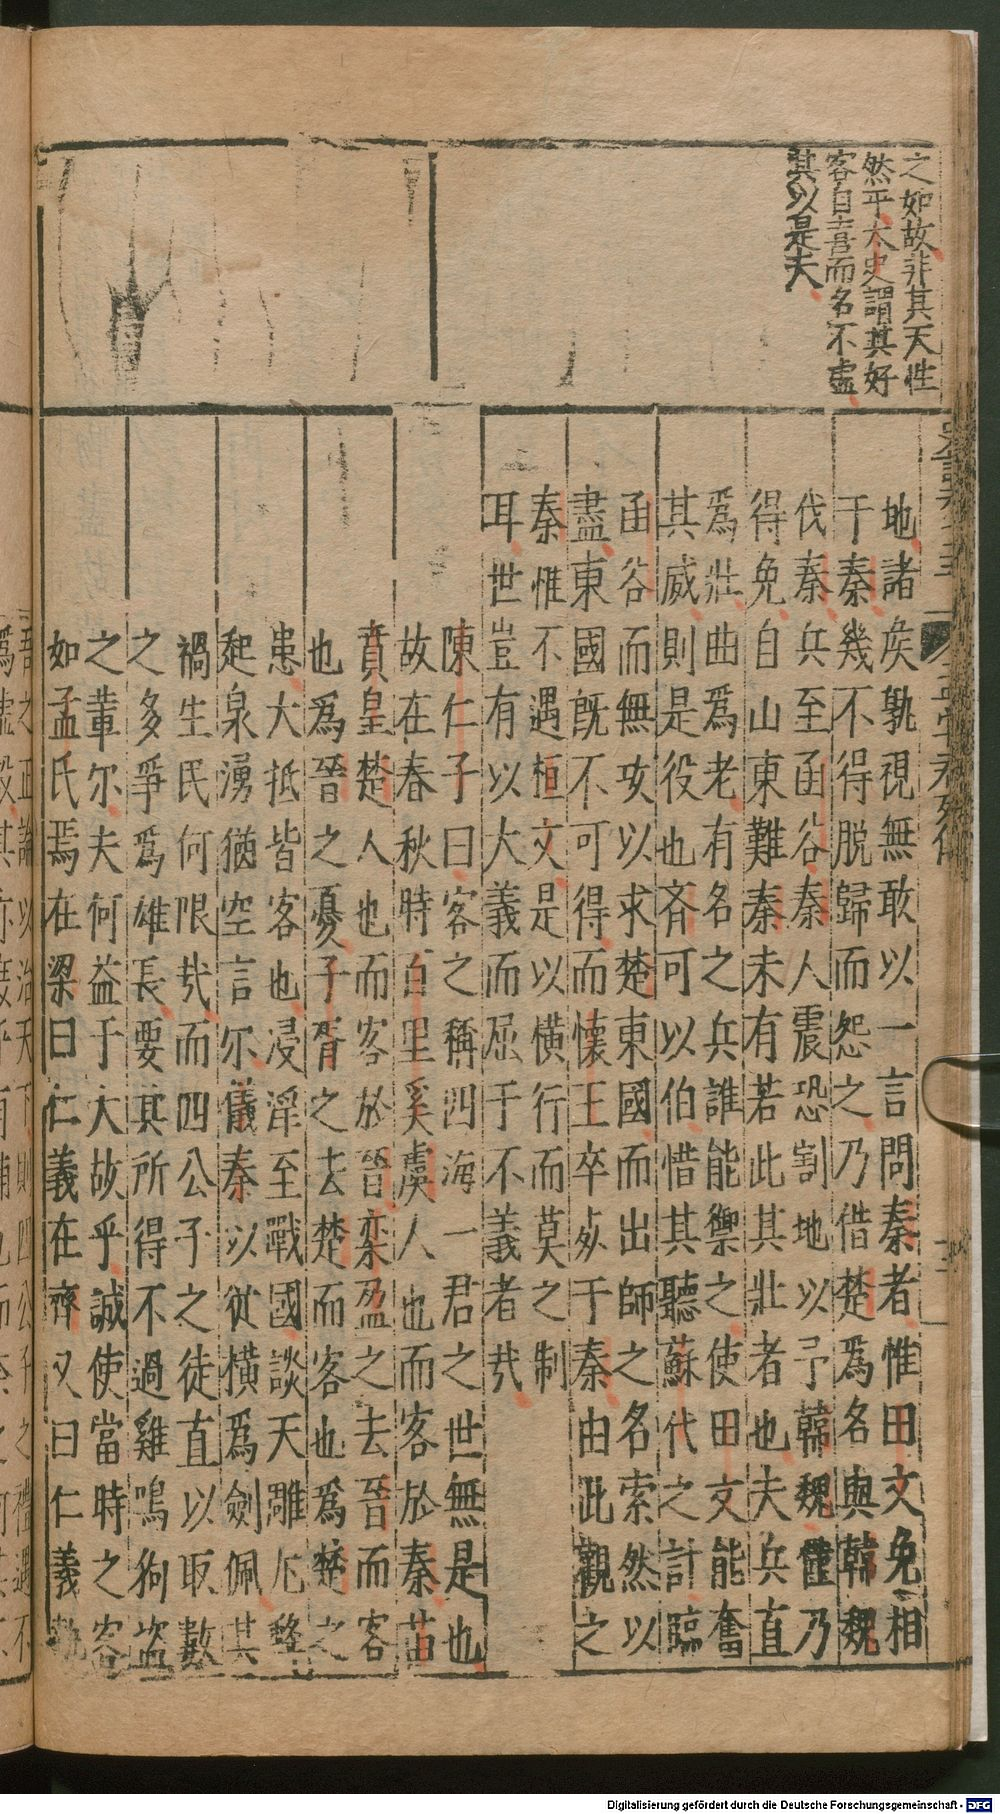 之如故非其天性
然乎太史謂其好
客自喜而名不虛
其以是夫
地諸矦孰視無敢以一言問秦者惟田文免相
于秦幾不得脫歸而怨之乃借楚爲名與韓魏
伐秦兵至函谷秦人震恐割地以予韓魏僅乃
得免自山東難秦未有若此其壯者也夫兵直
爲壯曲爲老有名之兵誰能禦之使田文能奮
其威則是役也齊可以伯惜其聽蘇代之計臨
函谷而無攻以求楚東國而出師之名索然以
盡東國旣不可得而懷王卒死于秦由此觀之
秦惟不遇桓文是以橫行而莫之制
耳世豈有以大義而屈于不義者㢤
陳仁子曰客之稱四海一君之世無是也
故在春秋時百里奚虞人也而客於秦苗
賁皇楚人也而客於晉欒盈之去晉而客
也爲晉之憂子胥之去楚而客也爲楚之
患大抵皆客也浸淫至戰國談天雕
起泉湧猶空言尔儀秦以從橫爲劍佩其
禍生民何限㢤而四公子之徒直以取數
之多爭爲雄長要其所得不過雞鳴狗盜
之輩尔夫何益于大故乎誠使當時之客
如孟氏焉在梁曰仁義在齊又曰仁義孰
Digitalisierung gefördert durch die Deutsche Forschungsgemeinschaft - DFG